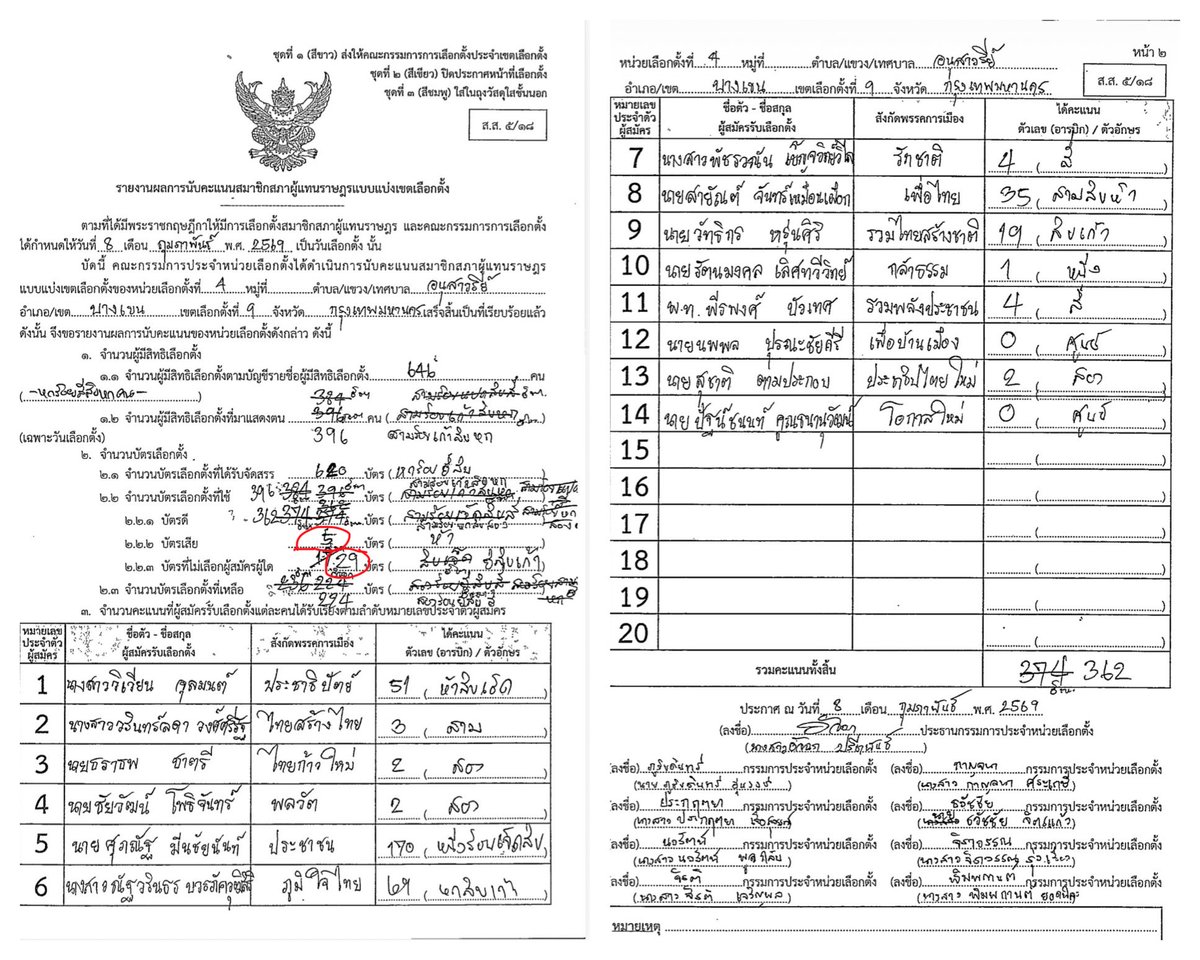 ชุดที่ ๑ (สีขาว) ส่งให้คณะกรรมการการเลือกตั้งประจำเขตเลือกตั้ง
ชุดที่ ๒ (สีเขียว) ปิดประกาศหน้าที่เลือกตั้ง
ชุดที่ ๓ (สีชมพู) ใส่ในถุงวัสดุใสชั้นนอก
ส.ส. ๕/๑๘
รายงานผลการนับคะแนนสมาชิกสภาผู้แทนราษฎรแบบแบ่งเขตเลือกตั้ง
ตามที่ได้มีพระราชกฤษฎีกาให้มีการเลือกตั้งสมาชิกสภาผู้แทนราษฎร และคณะกรรมการการเลือกตั้ง
ได้กำหนดให้วันที่ 8 เดือน กุมภาพันธ์ พ.ศ. 2569 เป็นวันเลือกตั้ง นั้น
บัดนี้ คณะกรรมการประจำหน่วยเลือกตั้งได้ดำเนินการนับคะแนนสมาชิกสภาผู้แทนราษฎร
แบบแบ่งเขตเลือกตั้งของหน่วยเลือกตั้งที่ 4 หมู่ที่ ตำบล/แขวง/เทศบาล อนุสาวรีย์
อำเภอ/เขต บางเขน เขตเลือกตั้งที่ 9 จังหวัด กรุงเทพมหานคร เสร็จสิ้นเป็นที่เรียบร้อยแล้ว
ดังนั้น จึงขอรายงานผลการนับคะแนนของหน่วยเลือกตั้งดังกล่าว ดังนี้
๑. จำนวนผู้มีสิทธิเลือกตั้ง
๑.๑ จำนวนผู้มีสิทธิเลือกตั้งตามบัญชีรายชื่อผู้มีสิทธิเลือกตั้ง 646 คน
(-หกร้อยสี่สิบหกคน-)
๑.๒ จำนวนผู้มีสิทธิเลือกตั้งที่มาแสดงตน 396 คน (สามร้อยเก้าสิบหก)
(เฉพาะวันเลือกตั้ง) 396 สามร้อยเก้าสิบหก
๒. จำนวนบัตรเลือกตั้ง
๒.๑ จำนวนบัตรเลือกตั้งที่ได้รับจัดสรร 620 บัตร (หกร้อยยี่สิบ)
๒.๒ จำนวนบัตรเลือกตั้งที่ใช้ 396 บัตร (สามร้อยเก้าสิบหก)
๒.๒.๑ บัตรดี 362 บัตร (
๒.๒.๒ บัตรเสีย 5 บัตร (ห้า)
๒.๒.๓ บัตรที่ไม่เลือกผู้สมัครผู้ใด 29 บัตร (สิบเจ็ด ยี่สิบเก้า
๒.๓ จำนวนบัตรเลือกตั้งที่เหลือ 224 บัตร (
224 สองร้อยยี่สิบสี่
๓. จำนวนคะแนนที่ผู้สมัครรับเลือกตั้งแต่ละคนได้รับเรียงตามลำดับหมายเลขประจำตัวผู้สมัคร
หมายเลขประจำตัวผู้สมัคร ชื่อตัว - ชื่อสกุล ผู้สมัครรับเลือกตั้ง สังกัดพรรคการเมือง ได้คะแนน ตัวเลข (อารบิก) / ตัวอักษร
1 นางสาววิเวียน จุลมนต์ ประชาธิปัตย์ 51 (ห้าสิบเอ็ด)
2 นางสาววรินทร์ลดา ไทยสร้างไทย 3 (สาม)
3 นายธราธพ ชาตรี ไทยก้าวใหม่ 2 (สอง)
4 นายชัยวัฒน์ โพธิจันทร์ พลวัต 2 (สอง)
5 นายศุภณัฐ มีนชัยนันท์ ประชาชน 170 (หนึ่งร้อยเจ็ดสิบ)
6 ภูมิใจไทย 69 (หกสิบเก้า)
หน้า ๒
หน่วยเลือกตั้งที่ 4 หมู่ที่ ตำบล/แขวง/เทศบาล อนุสาวรีย์
อำเภอ/เขต บางเขน เขตเลือกตั้งที่ 9 จังหวัด กรุงเทพมหานคร
ส.ส. ๕/๑๘
หมายเลขประจำตัวผู้สมัคร ชื่อตัว - ชื่อสกุล ผู้สมัครรับเลือกตั้ง สังกัดพรรคการเมือง ได้คะแนน ตัวเลข (อารบิก) / ตัวอักษร
7 นางสาวพัชรวณัน รักชาติ 4 (สี่)
8 นายสายัณต์ จันทร์เหมือนเผือก เพื่อไทย 35 (สามสิบห้า)
9 นายวัทธิกร หรุ่นศิริ รวมไทยสร้างชาติ 19 (สิบเก้า)
10 นายรัตนมงคล เลิศทวีวิทย์ กล้าธรรม 1 (หนึ่ง)
11 พ.ท. พีรพงศ์ บัวเทศ รวมพลังประชาชน 4 (สี่)
12 นายนพพล ปุรณะชัยคีรี เพื่อบ้านเมือง 0 (ศูนย์)
13 นายสุชาติ ตามประกอบ ประชาธิปไตยใหม่ 2 (สอง)
14 นายปัฐน์ชนนท์ คุณธนานุวัฒน์ โอกาสใหม่ 0 (ศูนย์)
15 ( )
16 ( )
17 ( )
18 ( )
19 ( )
20 ( )
รวมคะแนนทั้งสิ้น 374 362
ประกาศ ณ วันที่ 8 เดือน กุมภาพันธ์ พ.ศ. 2569
(ลงชื่อ) ประธานกรรมการประจำหน่วยเลือกตั้ง
(ลงชื่อ) กรรมการประจำหน่วยเลือกตั้ง (ลงชื่อ) กาญจนา กรรมการประจำหน่วยเลือกตั้ง
(ลงชื่อ) ประกฤตยา กรรมการประจำหน่วยเลือกตั้ง (ลงชื่อ) ธวัชชัย กรรมการประจำหน่วยเลือกตั้ง
(ลงชื่อ) นวรัตน์ กรรมการประจำหน่วยเลือกตั้ง (ลงชื่อ) จิดาวรรณ กรรมการประจำหน่วยเลือกตั้ง
(ลงชื่อ) จิรติ กรรมการประจำหน่วยเลือกตั้ง (ลงชื่อ) พิมพกานต์ กรรมการประจำหน่วยเลือกตั้ง
หมายเหตุ